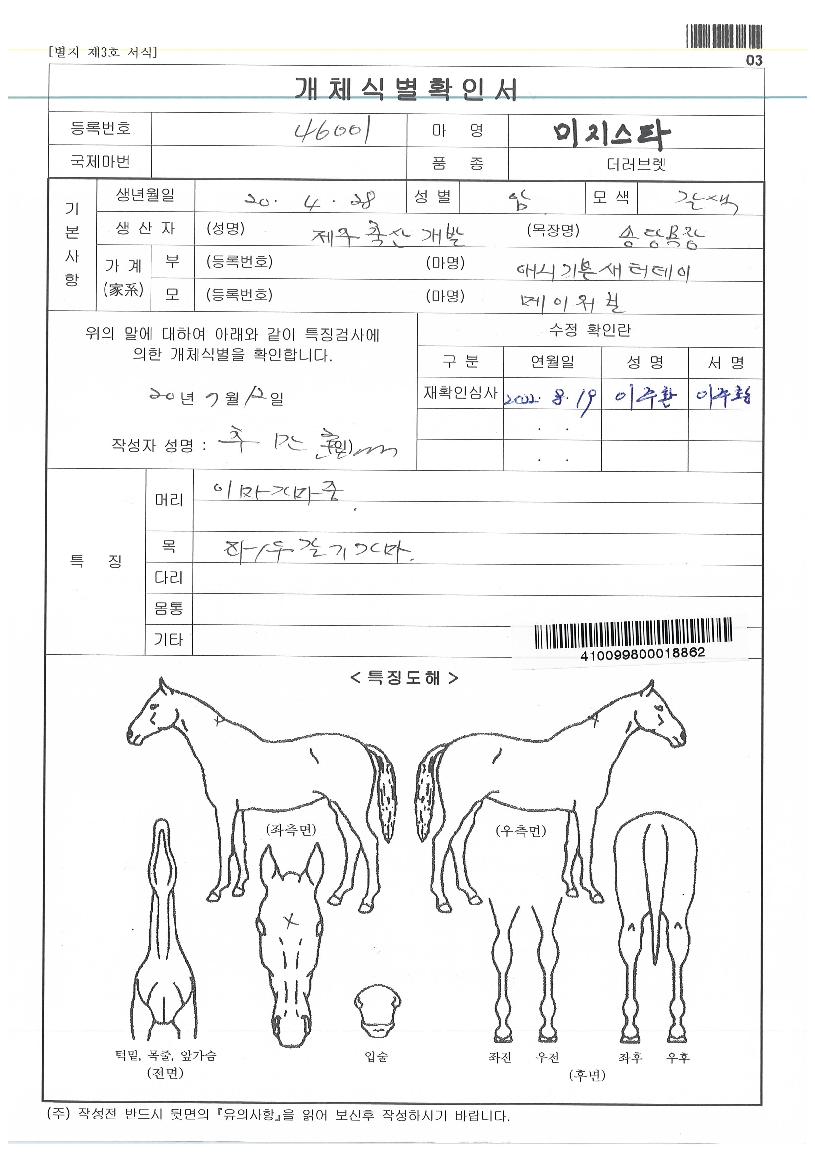 [별지 제3호 서식]
03
개체식별확인서
등록번호 46001 마 명 미지스타
국제마번 품 종 더러브렛
기본사항
생년월일 20. 4. 28 성 별 암 모 색 갈색
생 산 자 (성명) 제주축산개발 (목장명) 송당목장
가 계 (家系) 부 (등록번호) (마명)
모 (등록번호) (마명) 메이퀸
위의 말에 대하여 아래와 같이 특징검사에
의한 개체식별을 확인합니다.
20년 7월 12일
작성자 성명 : (인)
수정 확인란
구 분 연월일 성 명 서 명
재확인심사 2022. 8. 19 이주환 이주환
. .
. .
특 징
머리 이마가마중
목 좌/우갈기가마.
다리
몸통
기타
410099800018862
< 특징도해 >
(좌측면) (우측면)
턱밑, 목줄, 앞가슴 입술 좌전 우전 좌후 우후
(전면) (후면)
(주) 작성전 반드시 뒷면의 『유의사항』을 읽어 보신후 작성하시기 바랍니다.